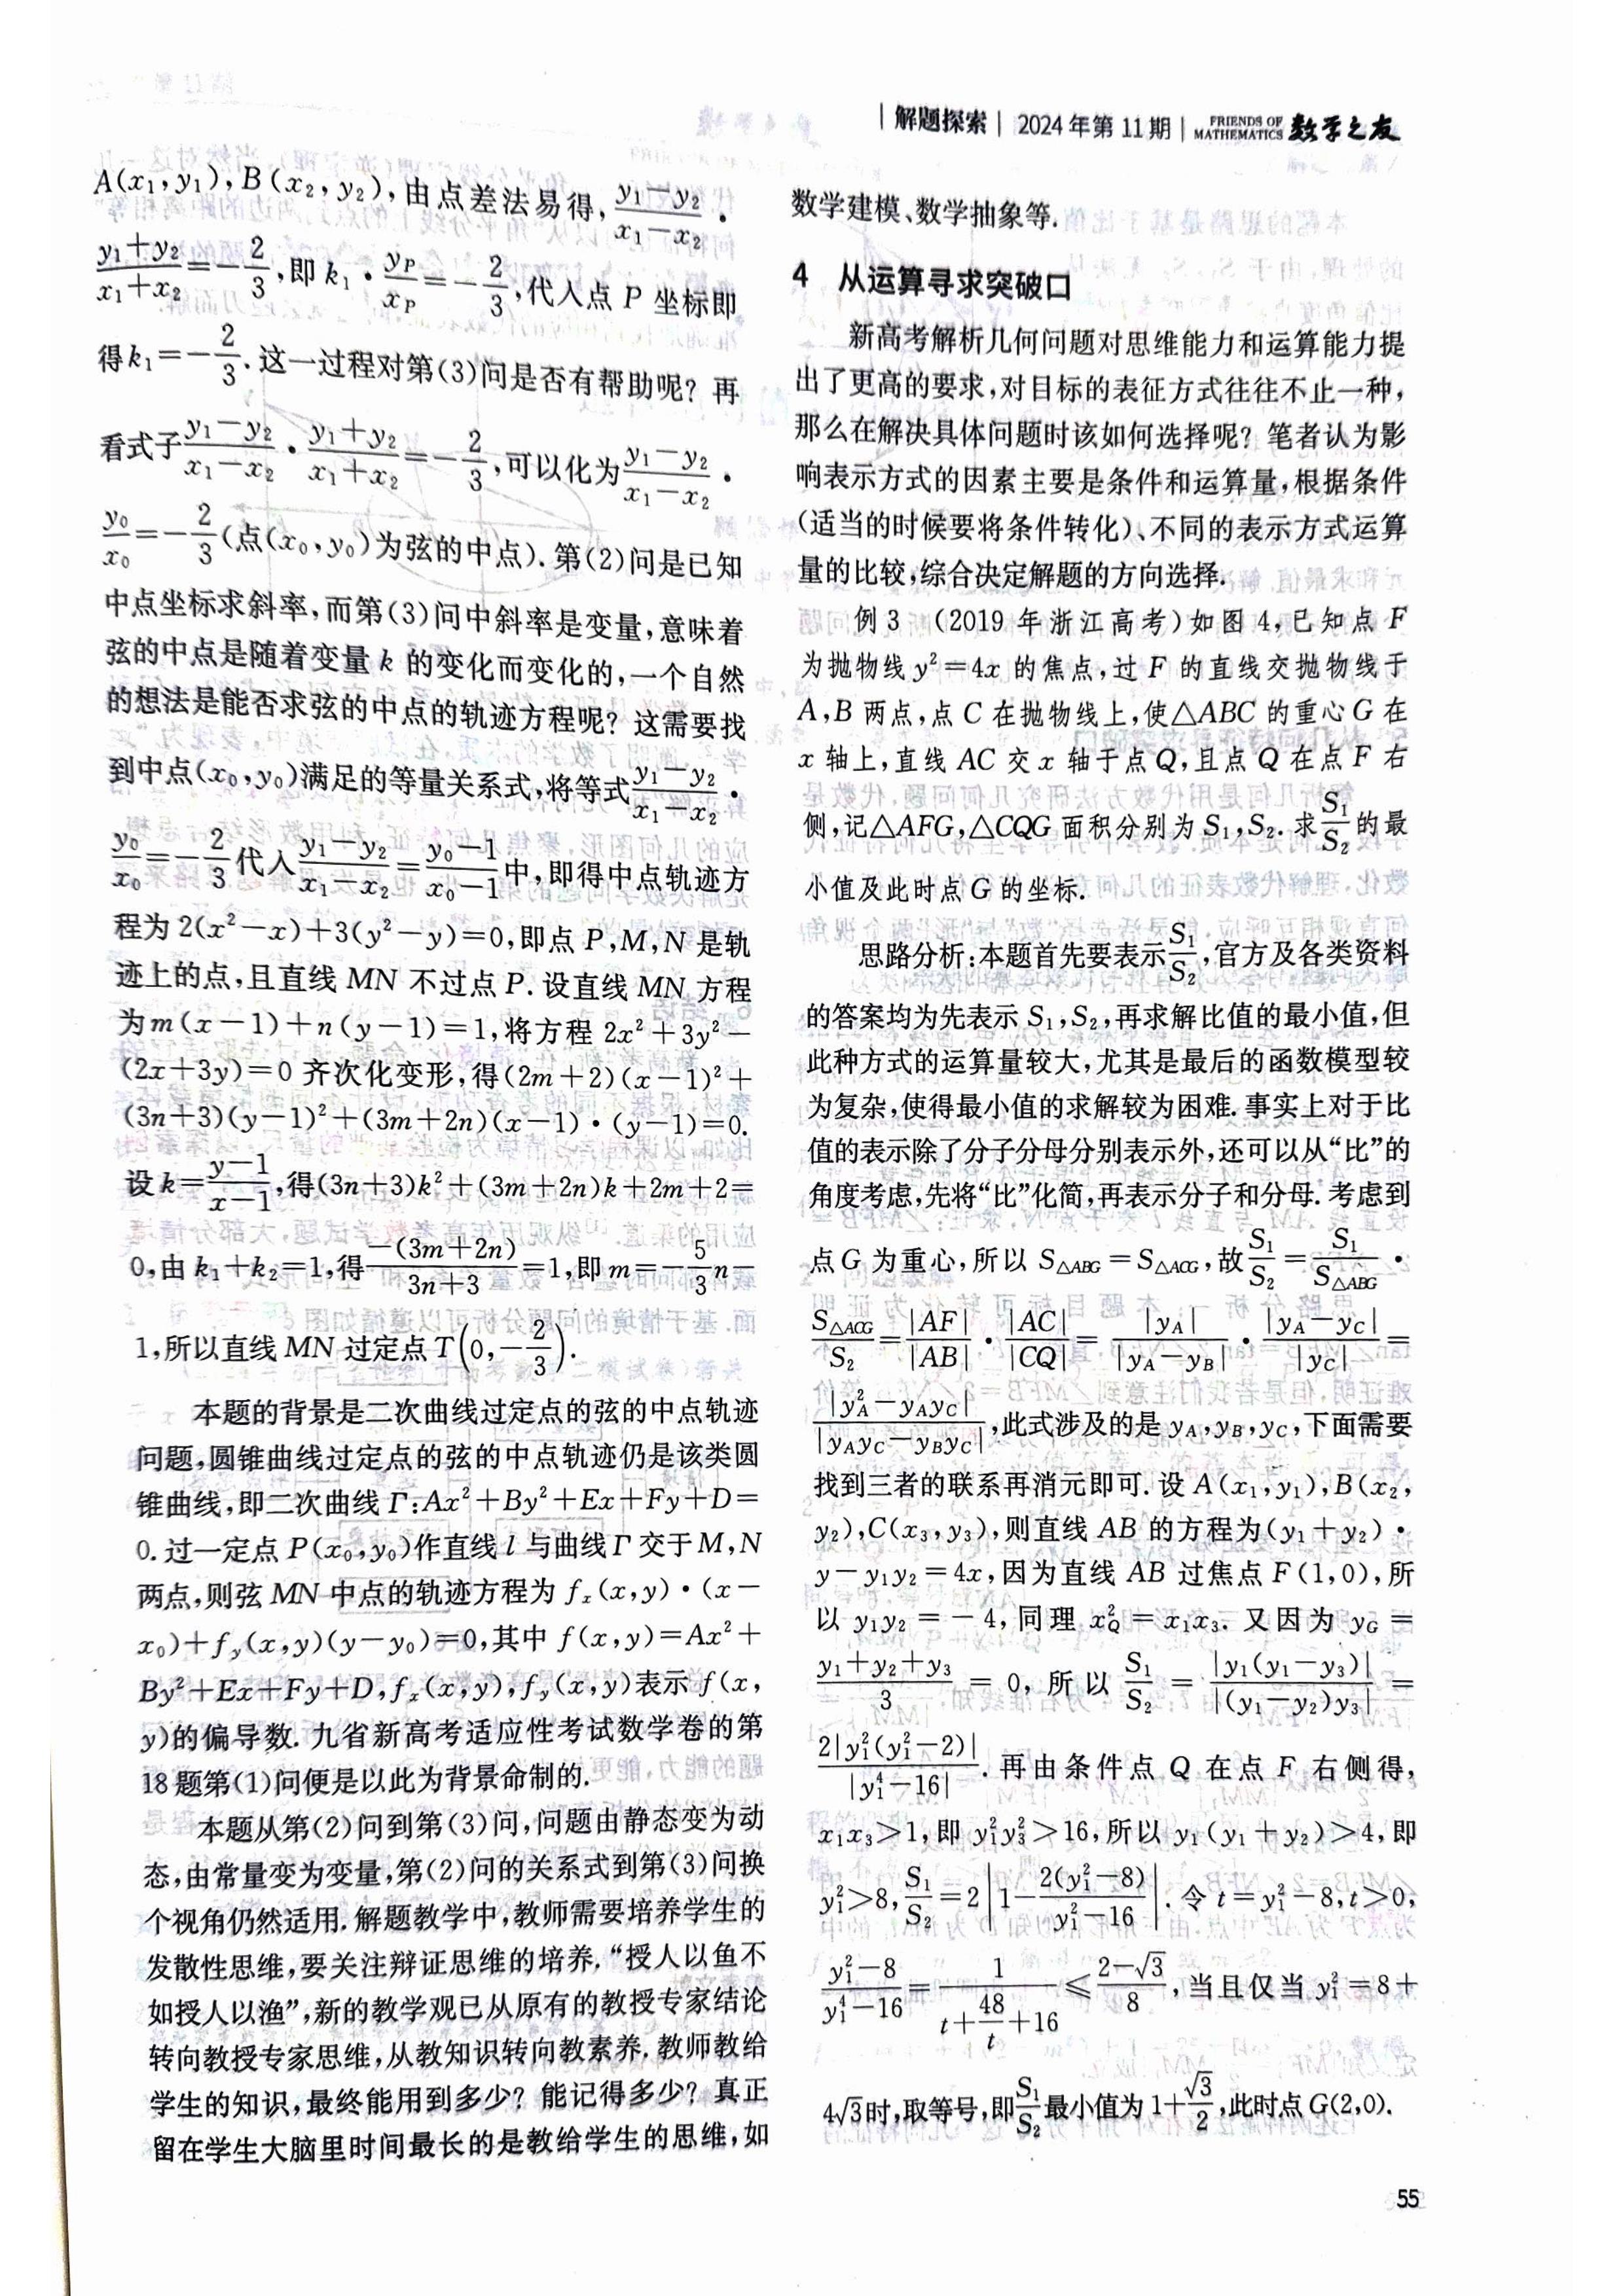 解题探索 | 2024年第11期 | FRIENDS OF MATHEMATICS 数学之友
A(x₁,y₁),B(x₂,y₂),由点差法易得,(y₁-y₂)/(x₁-x₂)·
(y₁+y₂)/(x₁+x₂)=-2/3,即k₁·y_P/x_P=-2/3,代入点P坐标即
得k₁=-2/3.这一过程对第(3)问是否有帮助呢?再
看式子(y₁-y₂)/(x₁-x₂)·(y₁+y₂)/(x₁+x₂)=-2/3,可以化为(y₁-y₂)/(x₁-x₂)·
y₀/x₀=-2/3(点(x₀,y₀)为弦的中点).第(2)问是已知
中点坐标求斜率,而第(3)问中斜率是变量,意味着
弦的中点是随着变量k的变化而变化的,一个自然
的想法是能否求弦的中点的轨迹方程呢?这需要找
到中点(x₀,y₀)满足的等量关系式,将等式(y₁-y₂)/(x₁-x₂)·
y₀/x₀=-2/3代入(y₁-y₂)/(x₁-x₂)=(y₀-1)/(x₀-1)中,即得中点轨迹方
程为2(x²-x)+3(y²-y)=0,即点P,M,N是轨
迹上的点,且直线MN不过点P.设直线MN方程
为m(x-1)+n(y-1)=1,将方程2x²+3y²-
(2x+3y)=0齐次化变形,得(2m+2)(x-1)²+
(3n+3)(y-1)²+(3m+2n)(x-1)·(y-1)=0.
设k=(y-1)/(x-1),得(3n+3)k²+(3m+2n)k+2m+2=
0,由k₁+k₂=1,得-(3m+2n)/(3n+3)=1,即m=-5/3n-
1,所以直线MN过定点T(0,-2/3).
本题的背景是二次曲线过定点的弦的中点轨迹
问题,圆锥曲线过定点的弦的中点轨迹仍是该类圆
锥曲线,即二次曲线Γ:Ax²+By²+Ex+Fy+D=
0.过一定点P(x₀,y₀)作直线l与曲线Γ交于M,N
两点,则弦MN中点的轨迹方程为fₓ(x,y)·(x-
x₀)+f_y(x,y)(y-y₀)=0,其中f(x,y)=Ax²+
By²+Ex+Fy+D,fₓ(x,y),f_y(x,y)表示f(x,
y)的偏导数.九省新高考适应性考试数学卷的第
18题第(1)问便是以此为背景命制的.
本题从第(2)问到第(3)问,问题由静态变为动
态,由常量变为变量,第(2)问的关系式到第(3)问换
个视角仍然适用.解题教学中,教师需要培养学生的
发散性思维,要关注辩证思维的培养.“授人以鱼不
如授人以渔”,新的教学观已从原有的教授专家结论
转向教授专家思维,从教知识转向教素养.教师教给
学生的知识,最终能用到多少?能记得多少?真正
留在学生大脑里时间最长的是教给学生的思维,如
数学建模、数学抽象等.
4 从运算寻求突破口
新高考解析几何问题对思维能力和运算能力提
出了更高的要求,对目标的表征方式往往不止一种,
那么在解决具体问题时该如何选择呢?笔者认为影
响表示方式的因素主要是条件和运算量,根据条件
(适当的时候要将条件转化)、不同的表示方式运算
量的比较,综合决定解题的方向选择.
例3 (2019年浙江高考)如图4,已知点F
为抛物线y²=4x的焦点,过F的直线交抛物线于
A,B两点,点C在抛物线上,使△ABC的重心G在
x轴上,直线AC交x轴于点Q,且点Q在点F右
侧,记△AFG,△CQG面积分别为S₁,S₂.求S₁/S₂的最
小值及此时点G的坐标.
思路分析:本题首先要表示S₁/S₂,官方及各类资料
的答案均为先表示S₁,S₂,再求解比值的最小值,但
此种方式的运算量较大,尤其是最后的函数模型较
为复杂,使得最小值的求解较为困难.事实上对于比
值的表示除了分子分母分别表示外,还可以从“比”的
角度考虑,先将“比”化简,再表示分子和分母.考虑到
点G为重心,所以S△ABG=S△ACG,故S₁/S₂=S₁/S△ABG·
S△ACG/S₂=|AF|/|AB|·|AC|/|CQ|=|y_A|/|y_A-y_B|·|y_A-y_C|/|y_C|=
|y_A²-y_Ay_C|/|y_Ay_C-y_By_C|,此式涉及的是y_A,y_B,y_C,下面需要
找到三者的联系再消元即可.设A(x₁,y₁),B(x₂,
y₂),C(x₃,y₃),则直线AB的方程为(y₁+y₂)·
y-y₁y₂=4x,因为直线AB过焦点F(1,0),所
以y₁y₂=-4,同理x_Q²=x₁x₃.又因为y_G=
(y₁+y₂+y₃)/3=0,所以S₁/S₂=|y₁(y₁-y₃)|/|(y₁-y₂)y₃|=
2|y₁²(y₁²-2)|/|y₁⁴-16|.再由条件点Q在点F右侧得,
x₁x₃>1,即y₁²y₃²>16,所以y₁(y₁+y₂)>4,即
y₁²>8,S₁/S₂=2|1-2(y₁²-8)/(y₁²-16)|.令t=y₁²-8,t>0,
(y₁²-8)/(y₁⁴-16)=1/(t+48/t+16)≤(2-√3)/8,当且仅当y₁²=8+
4√3时,取等号,即S₁/S₂最小值为1+√3/2,此时点G(2,0).
55